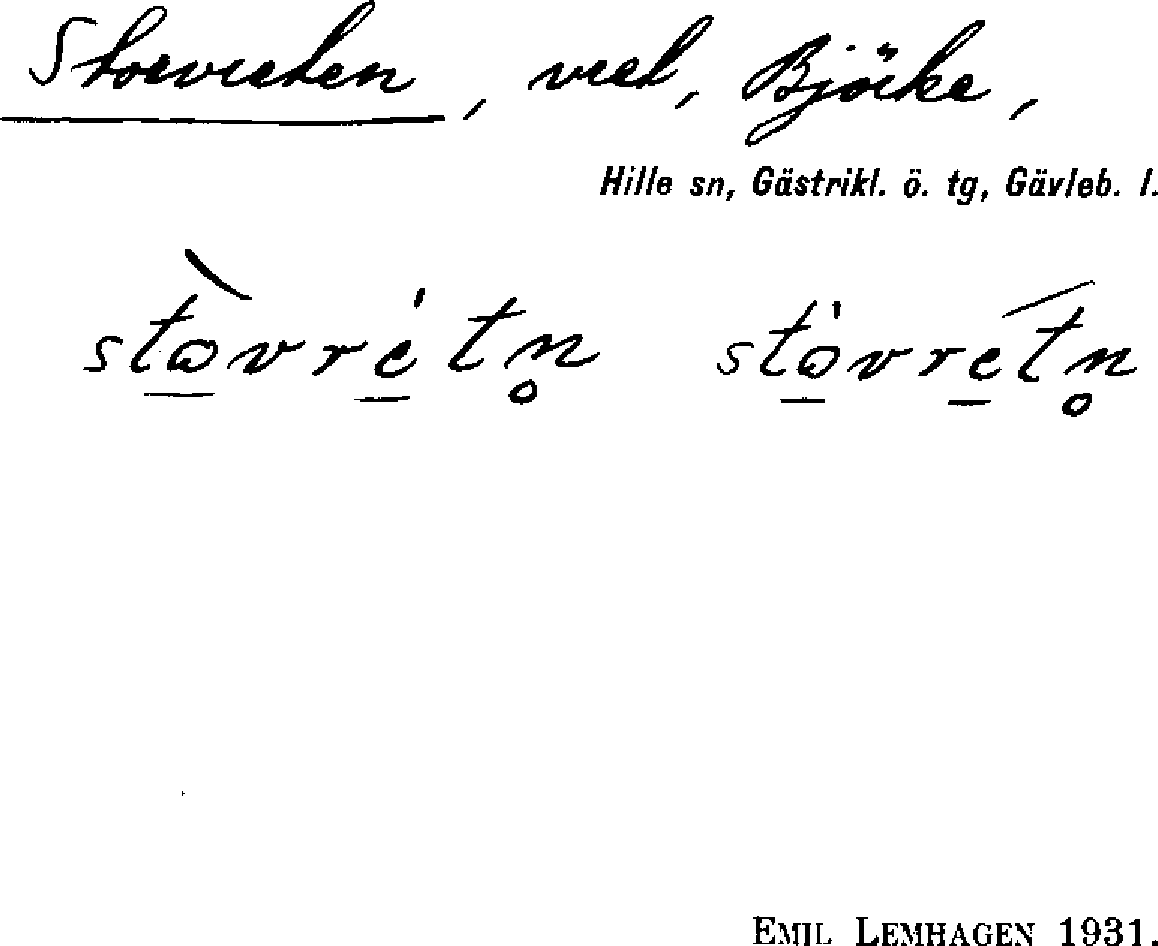 Storvreten, vret, Björke,
Hille sn, Gästrikl. ö. tg, Gävleb. l.
stovretn̥ stovretn̥
EMIL LEMHAGEN 1931.